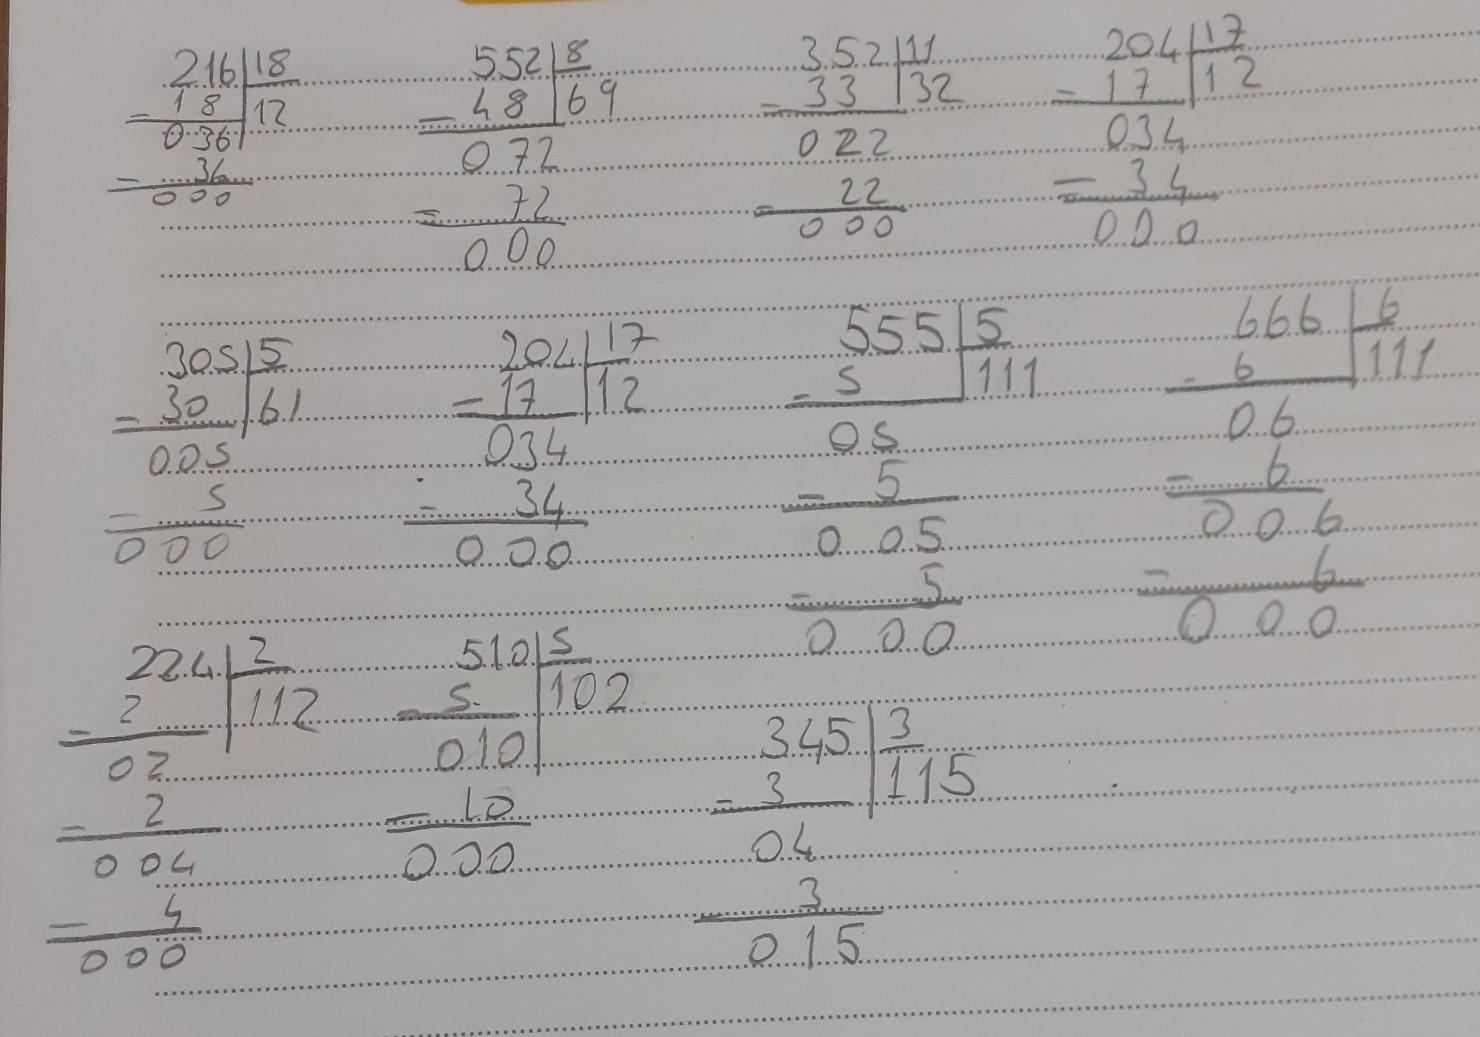 216 18 552 8 352 11 204 17
- 18 12 - 48 69 - 33 32 - 17 12
036 072 022 034
- 36 - 72 - 22 - 34
000 000 000 000
305 5 204 17 555 5 666 6
- 30 61 - 17 12 - 5 111 - 6 111
005 034 05 06
- 5 - 34 - 5 - 6
000 000 005 006
- 5 - 6
000 000
224 2 510 5 345 3
- 2 112 - 5 102 - 3 115
02 010 04
- 2 - 10 3
004 000 015
- 4
000